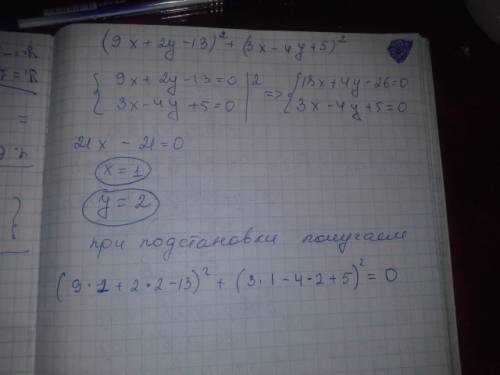 (9x+2y-13)²+(3x-4y+5)²
{9x+2y-13=0 |2 => {18x+4y-26=0
{3x-4y+5=0 | {3x-4y+5=0
21x - 21=0
x=1
y=2
при подстановки получаем
(9·1+2·2-13)²+(3·1-4·2+5)²=0